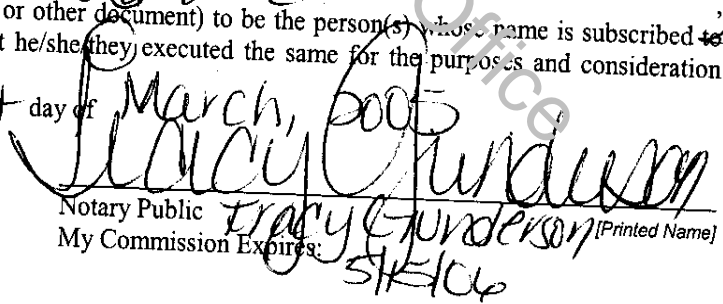 or other document) to be the person(s) whose name is subscribed to
t he/she/they executed the same for the purposes and consideration
day of March, 2005
Tracy Gunderson
Notary Public Tracy Gunderson [Printed Name]
My Commission Expires: 5/15/06
Office